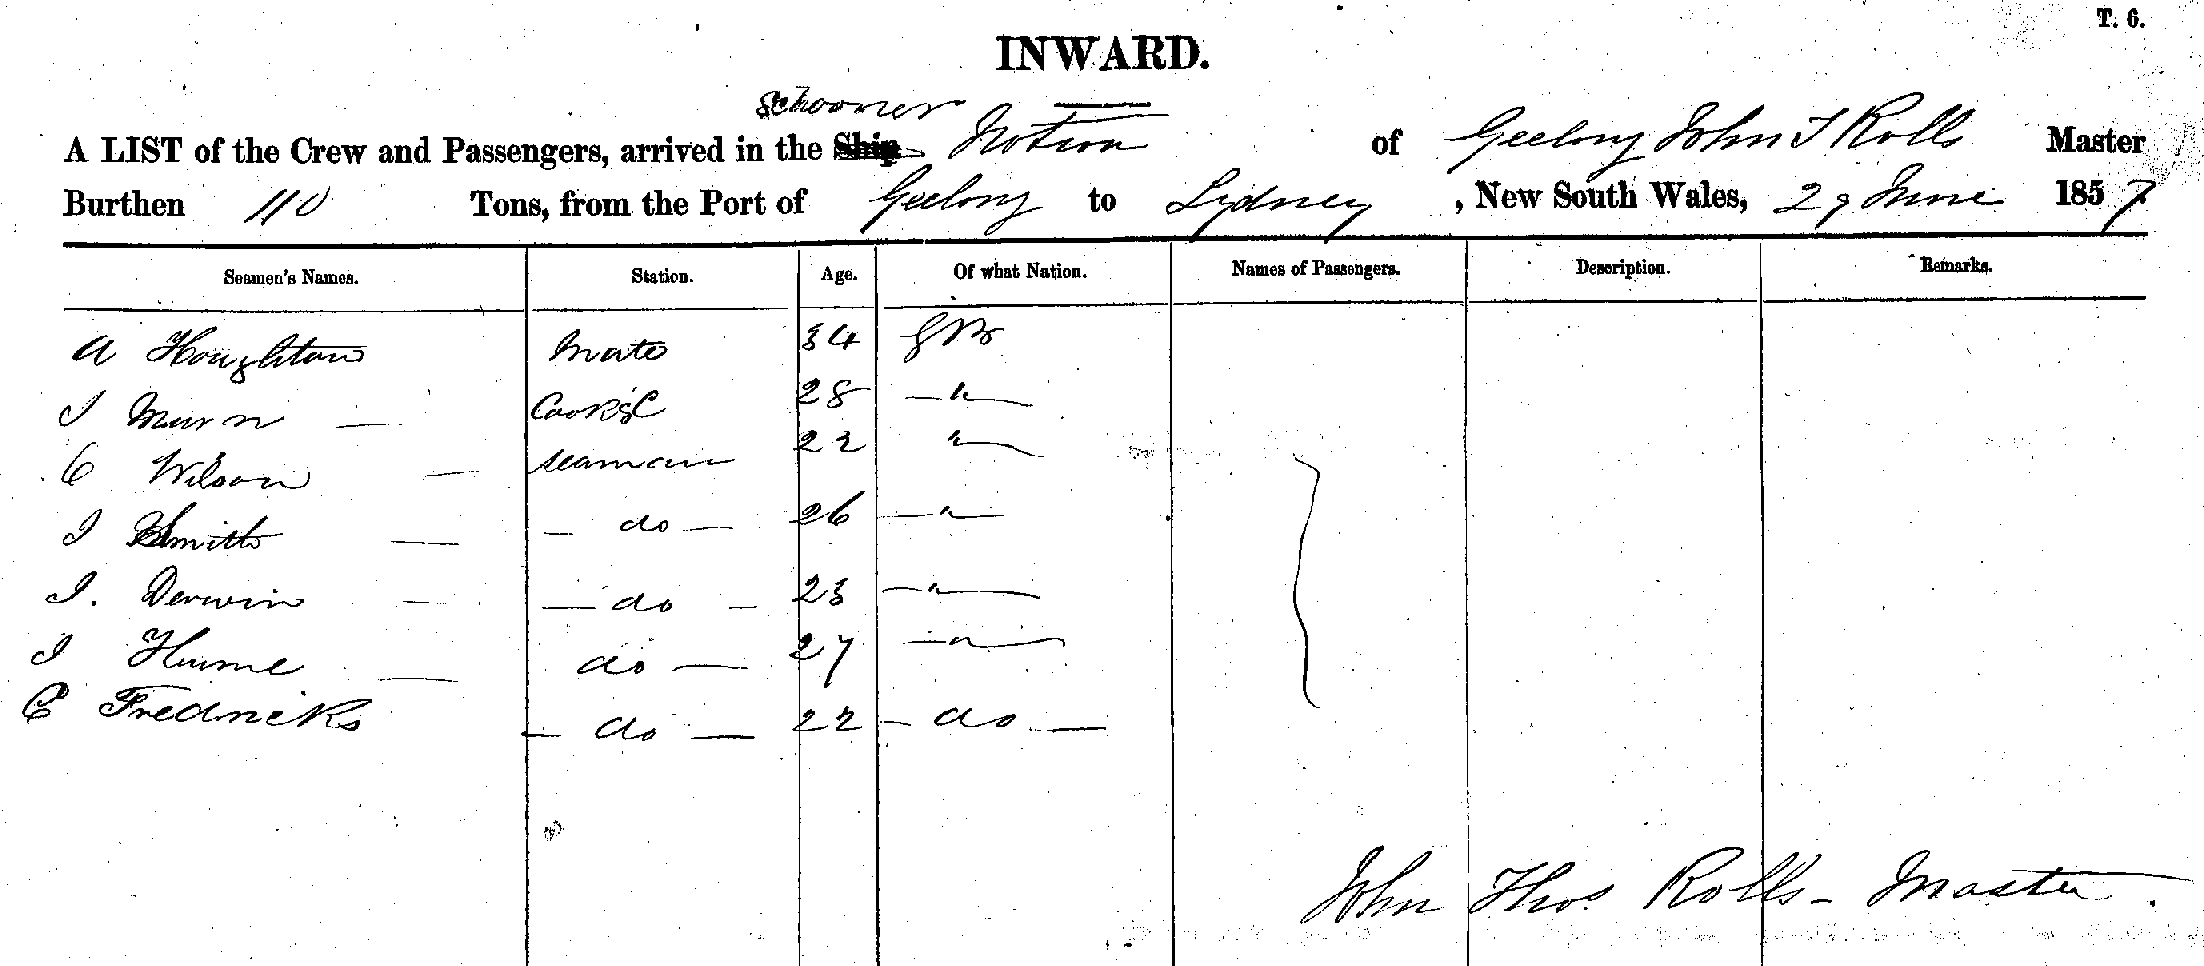 T. 6.
INWARD.
Schooner
A LIST of the Crew and Passengers, arrived in the Ship Notion of Geelong John T Rolls Master
Burthen 110 Tons, from the Port of Geelong to Sydney, New South Wales, 29 June 1857
Seamen's Names. Station. Age. Of what Nation. Names of Passengers. Description. Remarks.
A Houghton Mate 34 GBr
J Murn — Cook&C 28 — " —
C Wilson — Seaman 22 " —
J Smith — — do — 26 — " —
J. Derwin — — do — 23 — " —
J Hume — do — 27 — " —
C Fredricks — do — 22 — do —
John Thos Rolls - Master.